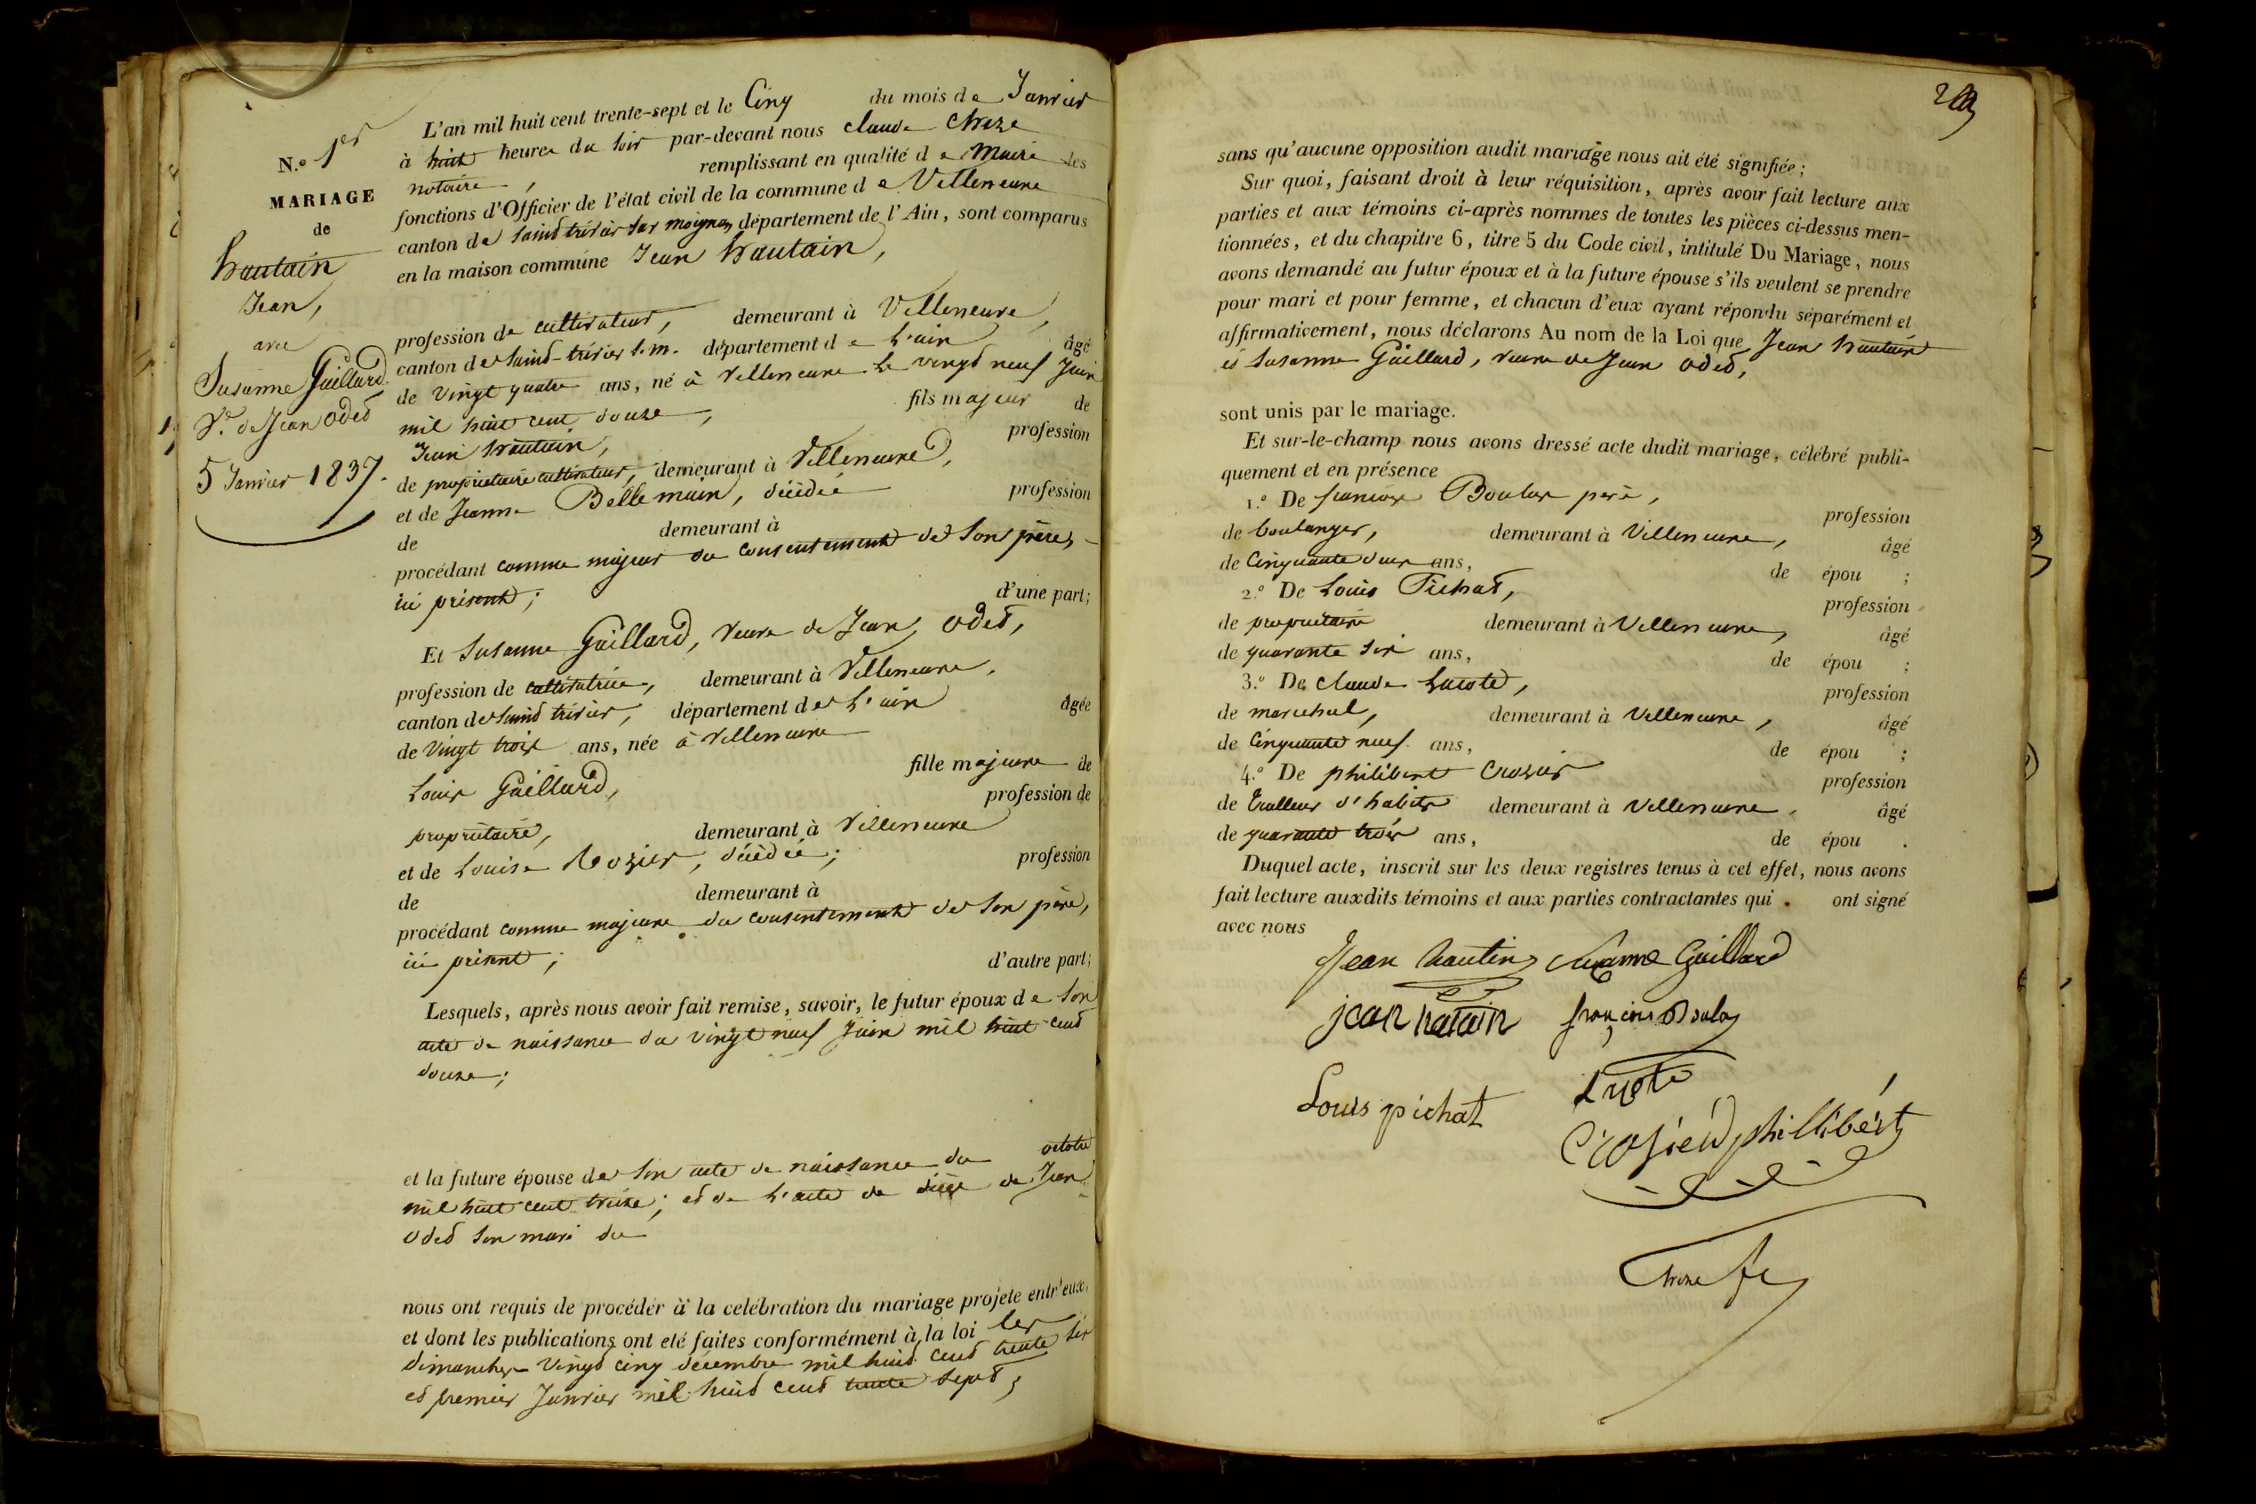 N.o 1er
MARIAGE
de
hautain
Jean,
avec
Susanne Gaillard
Ve. de Jean oded
5 Janvier 1837.
L'an mil huit cent trente-sept et le Cinq du mois de Janvier
à huit heures du soir par-devant nous Claude Cheze
notaire, remplissant en qualité de Maire les
fonctions d'Officier de l'état civil de la commune de Villeneuve
canton de saint trivier sur moignan, département de l'Ain, sont comparus
en la maison commune Jean hautain,
profession de cultivateur, demeurant à Villeneuve,
canton de saint-trivier s. m. département de L'ain âgé
de vingt quatre ans, né à Villeneuve le vingt neuf Juin
mil huit cent douze, fils majeur de
Jean hautain, profession
de propriétaire cultivateur, demeurant à Villeneuve,
et de Jeanne Bellemain, décédée profession
de demeurant à
procédant comme majeur du consentement de son père,
ici présent; d'une part;
Et Susanne Gaillard, veuve de Jean oded,
profession de cultivatrice, demeurant à Villeneuve,
canton de saint trivier, département de L'ain âgée
de vingt trois ans, née à Villeneuve
fille majeure de
Louis Gaillard, profession de
propriétaire, demeurant à Villeneuve
et de Louise Rozier, décédée; profession
de demeurant à
procédant comme majeure du consentement de son père,
ici présent; d'autre part;
Lesquels, après nous avoir fait remise, savoir, le futur époux de son
acte de naissance du vingt neuf Juin mil huit cent
douze;
et la future épouse de son acte de naissance du octobre
mil huit cent treize; et de L'acte de décès de Jean
oded son mari du
nous ont requis de procéder à la célébration du mariage projeté entr'eux,
et dont les publications ont été faites conformément à la loi les
dimanches vingt cinq décembre mil huit cent trente six
et premier Janvier mil huit cent trente sept;
sans qu'aucune opposition audit mariage nous ait été signifiée;
Sur quoi, faisant droit à leur réquisition, après avoir fait lecture aux
parties et aux témoins ci-après nommes de toutes les pièces ci-dessus men-
tionnées, et du chapitre 6, titre 5 du Code civil, intitulé Du Mariage, nous
avons demandé au futur époux et à la future épouse s'ils veulent se prendre
pour mari et pour femme, et chacun d'eux ayant répondu séparément et
affirmativement, nous déclarons Au nom de la Loi que Jean hautain
et Susanne Gaillard, veuve de Jean oded,
sont unis par le mariage.
Et sur-le-champ nous avons dressé acte dudit mariage, célébré publi-
quement et en présence
1.o De francois Boulas père, profession
de boulanger, demeurant à Villeneuve, âgé
de Cinquante deux ans, de épou ;
2.o De Louis Pichat, profession
de propriétaire demeurant à Villeneuve, âgé
de quarante six ans, de épou ;
3.o De Claude Lacote, profession
de marechal, demeurant à Villeneuve, âgé
de Cinquante neuf ans, de épou ;
4.o De philibert Crozier profession
de tailleur d'habits demeurant à Villeneuve, âgé
de quarante trois ans, de épou .
Duquel acte, inscrit sur les deux registres tenus à cet effet, nous avons
fait lecture auxdits témoins et aux parties contractantes qui ont signé
avec nous
Jean hautin Susanne Gaillard
jean hatain françois Boulas
Louis pichat
Crosier phillibért